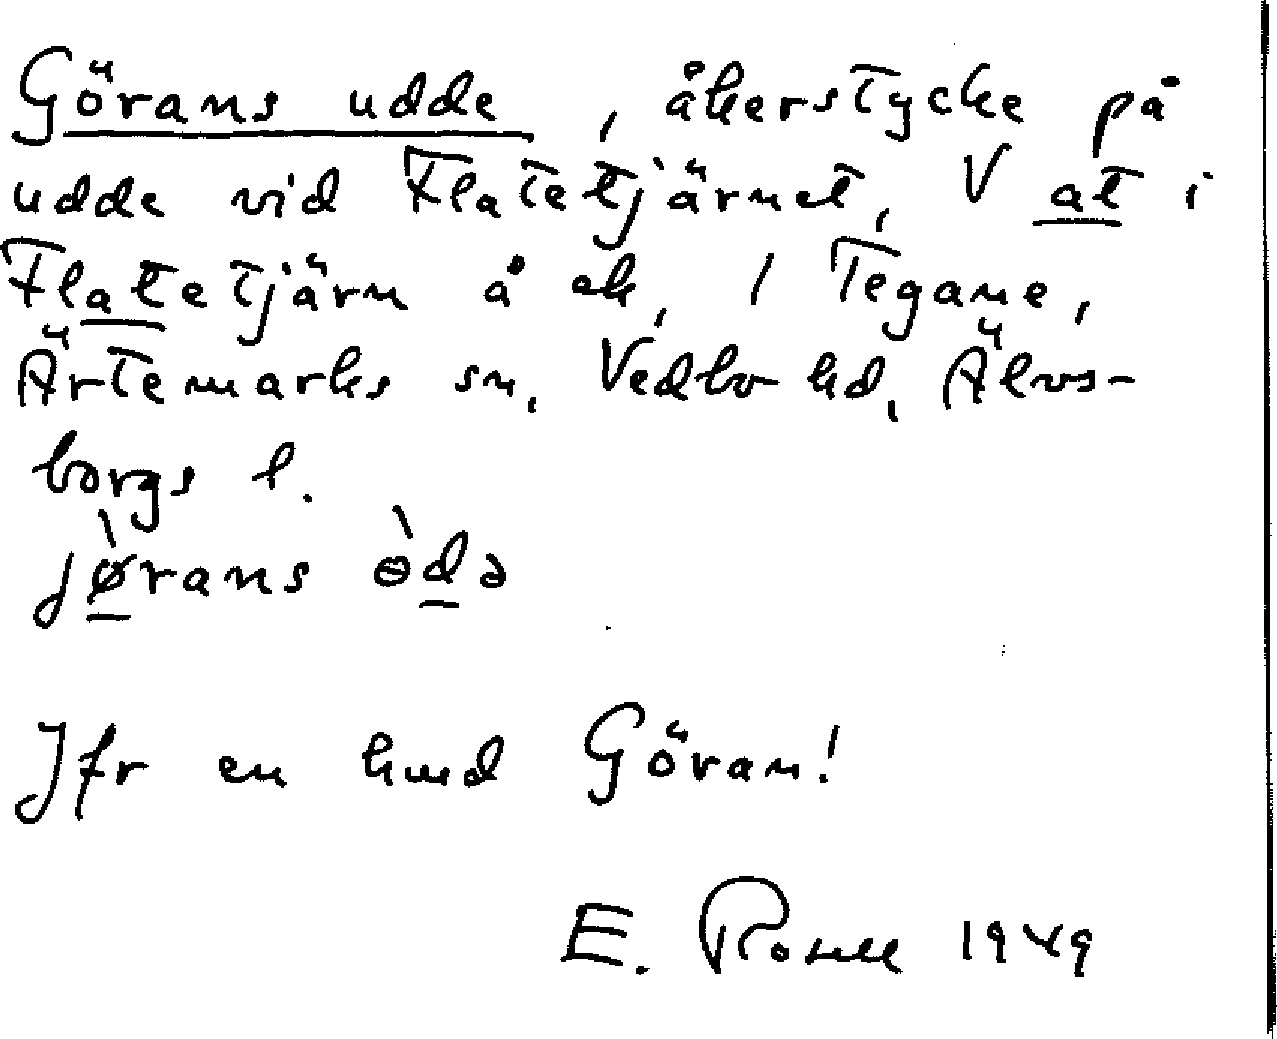 Görans udde, åkerstycke på
udde vid Flatetjärnet, V at i
Flatetjärn å ek, 1 Tegane,
Ärtemarks sn, Vedbo hd, Älvs-
borgs l.
jø̀rans ɵ̀də
Jfr en hmd Göran!
E. 1949